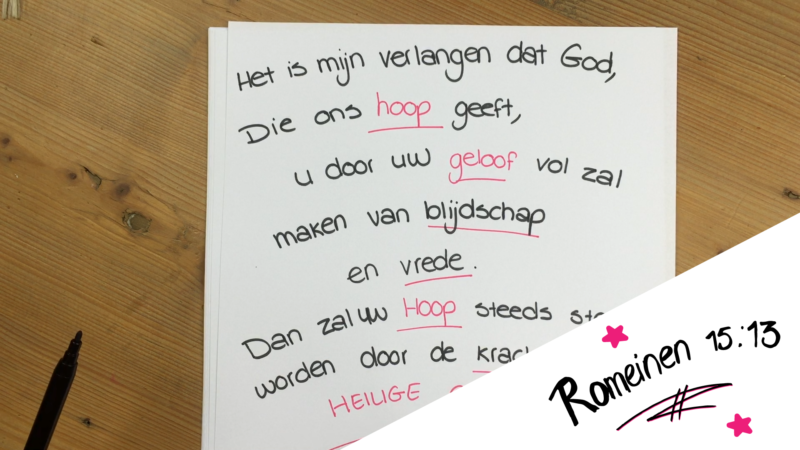 Het is mijn verlangen dat God,
Die ons hoop geeft,
u door uw geloof vol zal
maken van blijdschap
en vrede.
Dan zal uw Hoop steeds
worden door de
HEILIGE
Romeinen 15:13